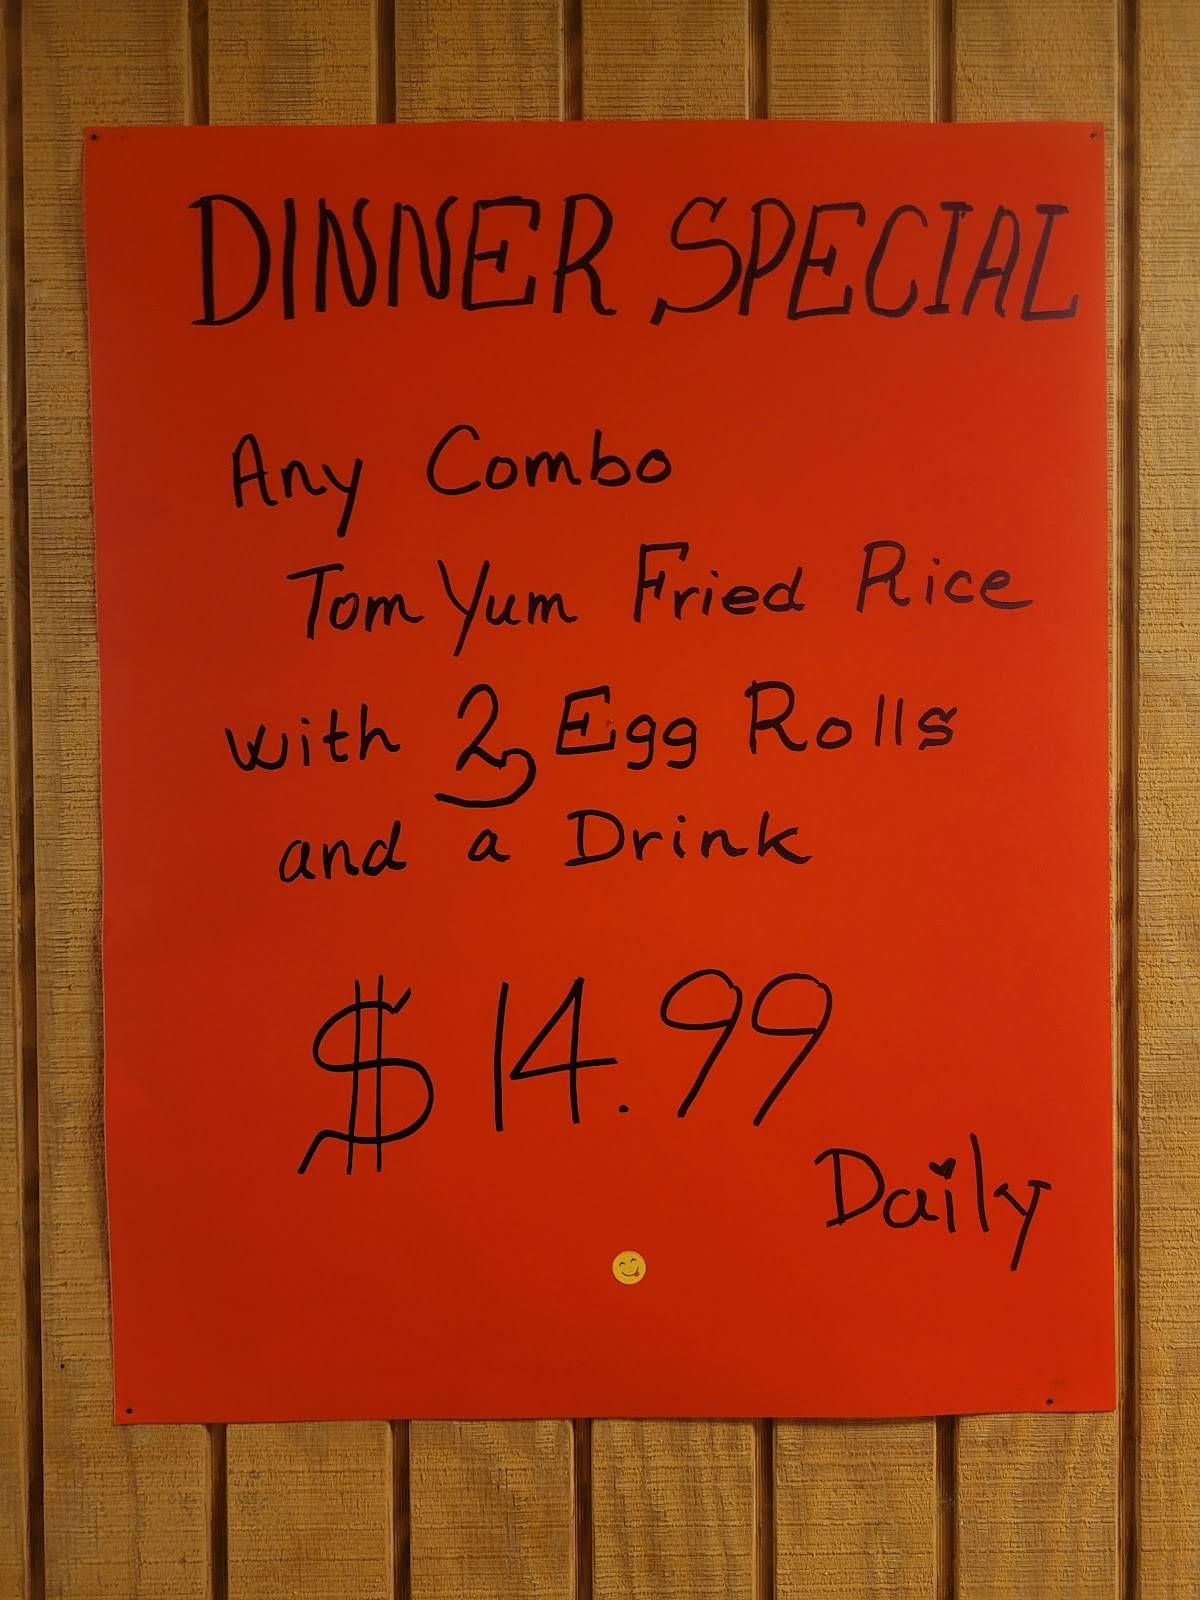 DINNER SPECIAL
Any Combo
Tom Yum Fried Rice
with 2 Egg Rolls
and a Drink
$14.99
Daily